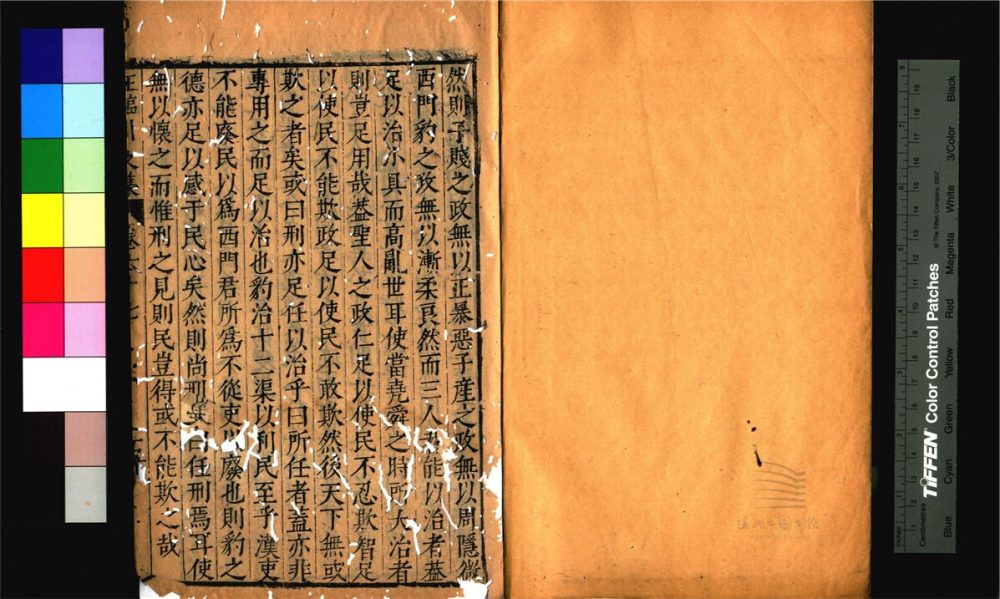 然則子賤之政無以正暴惡子産之政無以周隱微
西門豹之政無以漸柔良然而三人者能以治者葢
足以治小具而高亂世耳使當堯舜之時所大治者
則豈足用哉葢聖人之政仁足以使民不忍欺智足
以使民不能欺政足以使民不敢欺然後天下無或
欺之者矣或曰刑亦足任以治乎曰所任者葢亦非
專用之而足以治也豹治十二渠以利民至乎漢吏
不能廢民以爲西門君所爲不從吏以廢也則豹之
德亦足以感于民心矣然則尚刑曰任刑焉耳使
無以懷之而惟刑之見則民豈得或不能欺之哉
TIFFEN Color Control Patches
© The Tiffen Company, 2007
Centimetres
Inches
Blue Cyan Green Yellow Red Magenta White 3/Color Black